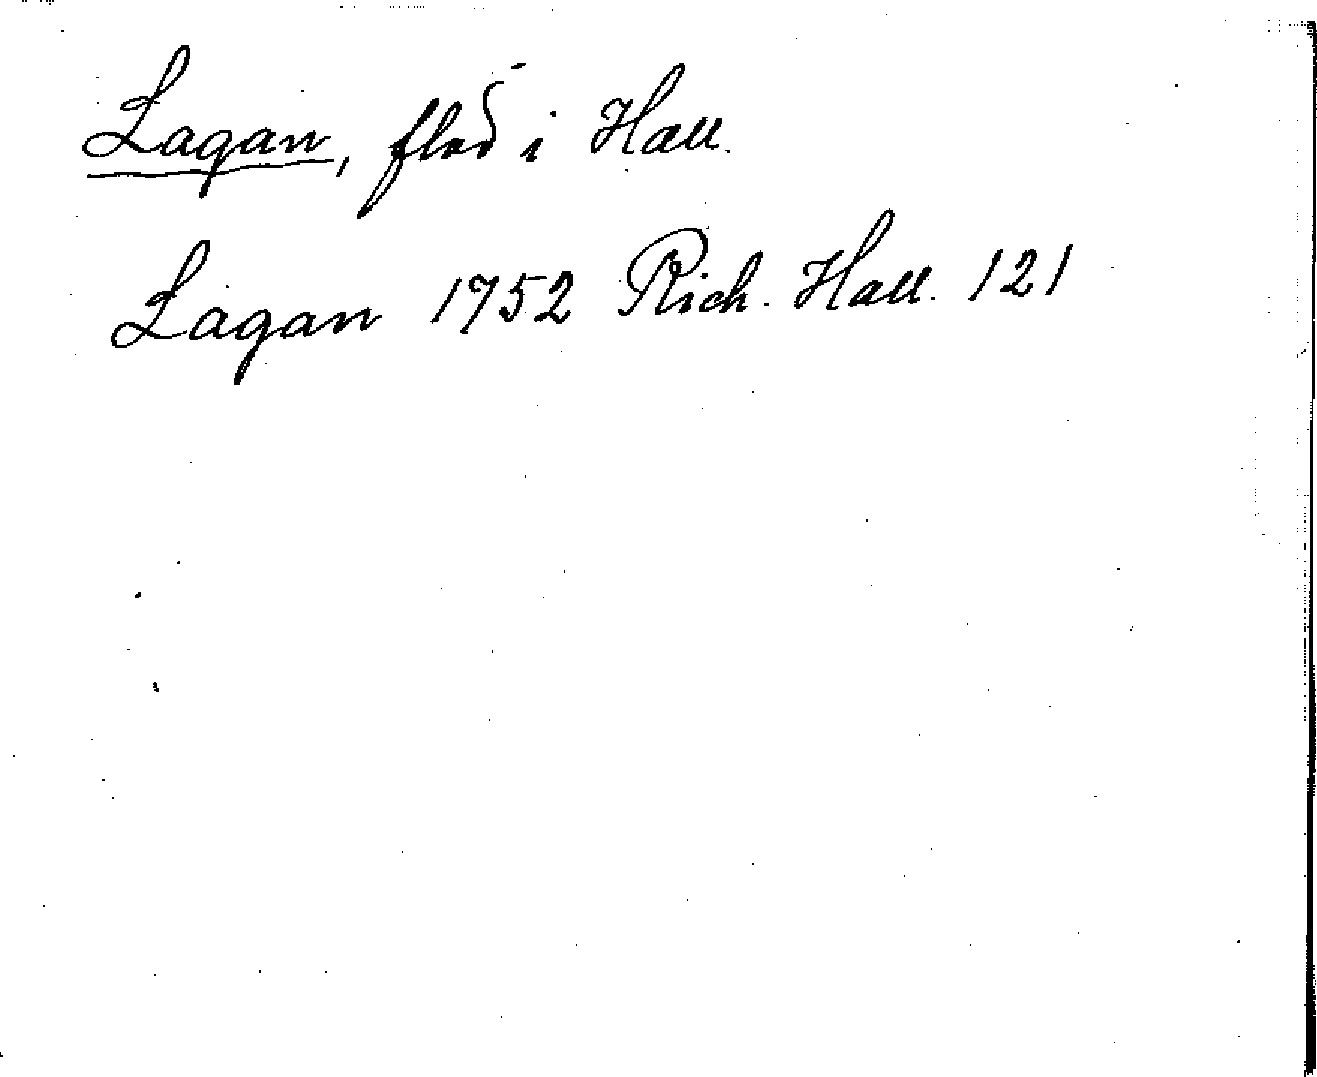 Lagan, flod i Hall.
Lagan 1752 Rich. Hall. 121